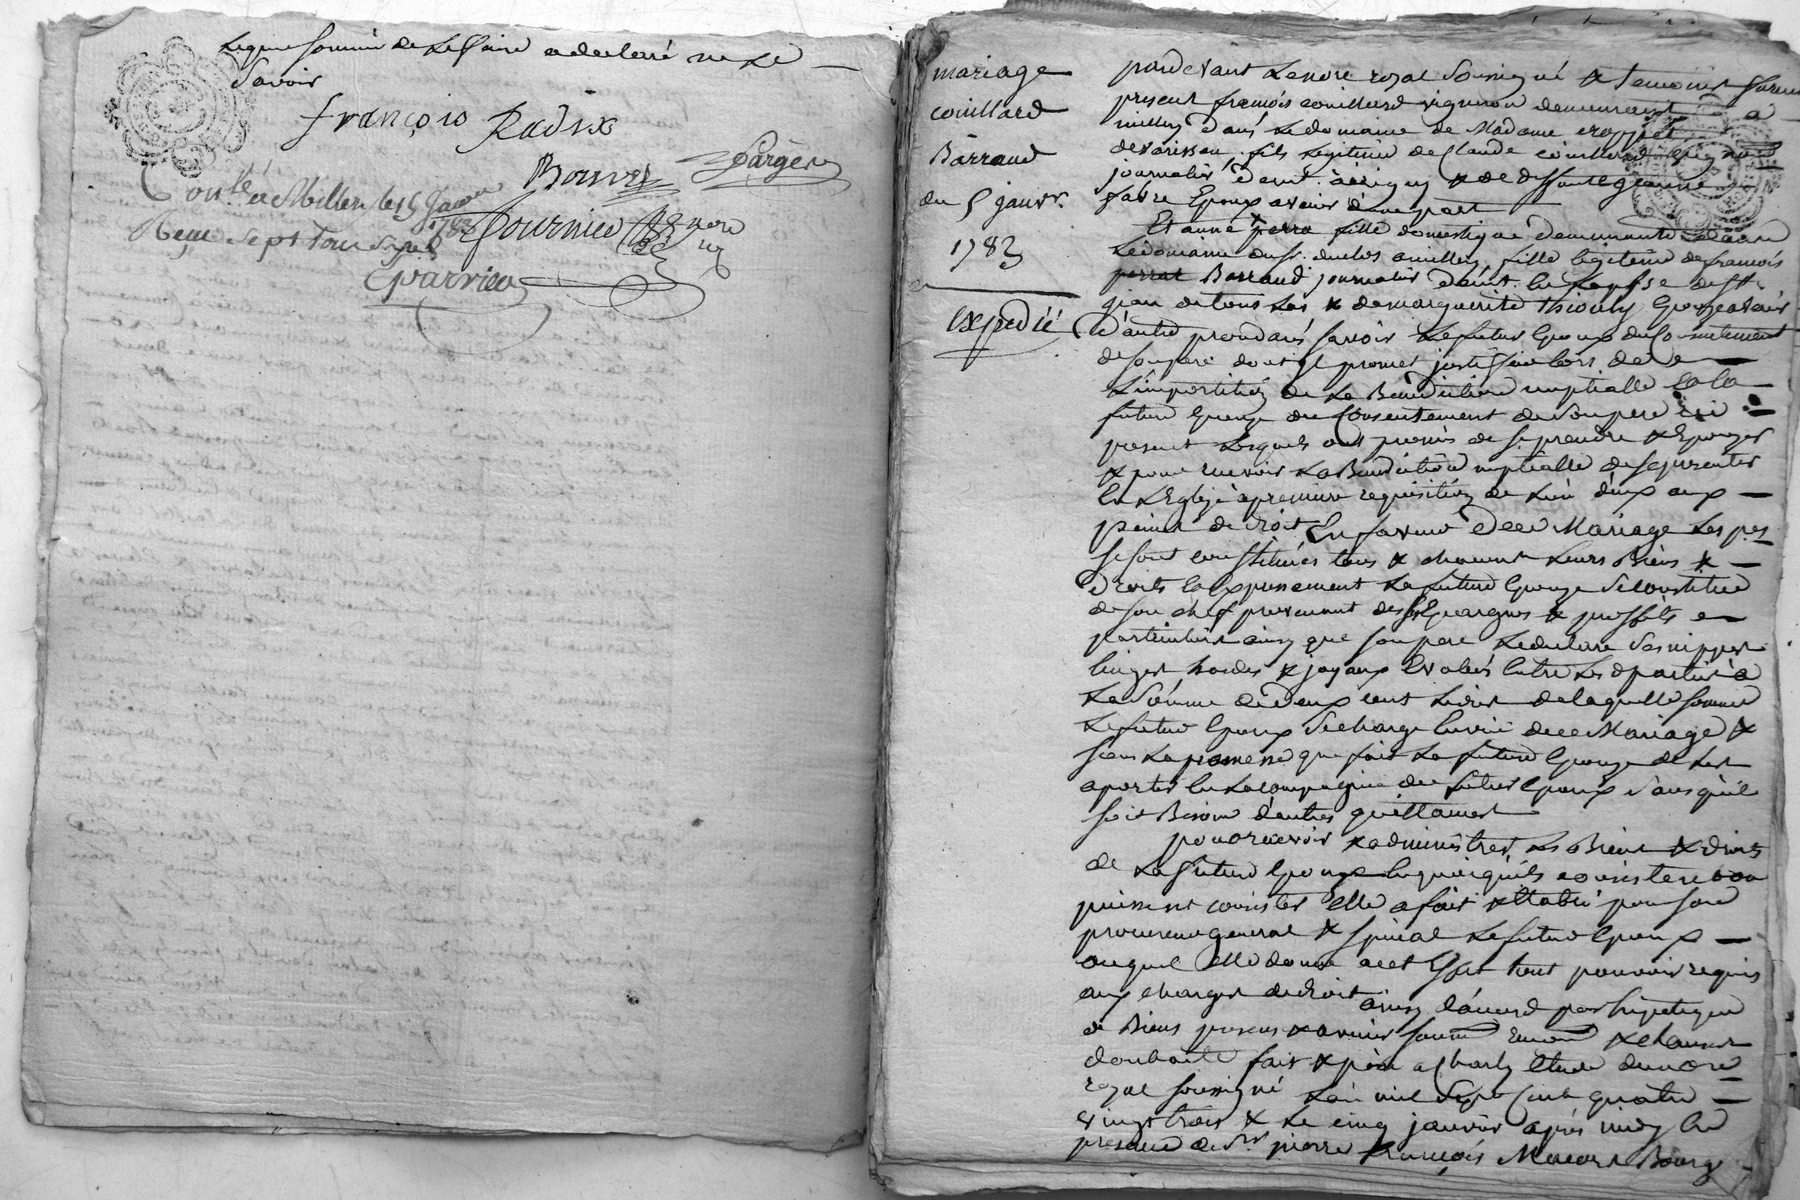 de ce faire a declaré ne le
Savoir
françois Radix
Bouvier Farges
Con.lé a Millery le 15 Janv.
1783
Reçu sept sous six d Fournier
mariage
couillard
Barraud
du 5 janvr.
1783
Expedié
pardevant Le nore royal soussigné & temoins furent
present françois couillard vigneron demeurant a
millery dans le domaine de Madame
fils legitime de Claude couillard
journalier demt. a & de deffunte jeanne
favre Epoux avenir d'une part
Et anne perra fille domestique demeurante dans
le domaine du sr. duclos a millery, fille legitime de françois
perrat Barraud journalier demt. en la psse de st
jean de tous las & de marguerite thiouly Epouze avenir
d'autre part savoir le futur Epoux du Consentement
de son pere dont Il promet justiffier lors de
L'impartition de la Benediction nuptialle Et la
future Epouze du Consentement de son pere ici
present Lesquels ont promis de se prendre & Epouzer
& pour recevoir la Benediction nuptialle de se presenter
En L'Eglize a premiere requisition de L'un d'eux aux
peines de droit En faveur de ce Mariage Les pes
se sont constitués tous & chacuns leurs Biens &
droits Et Expressement la future Epouze se constitue
de son chef provenant de ses Epargnes & proffits
particuliers ainsy que son pere le declare ses nippes
linges hardes & joyaux Evalués Entre les parties a
La Somme de deux cent Livres de laquelle somme
Le futur Epoux se charge En vuë de ce Mariage &
sous La promesse que fait La future Epouze de les
aporter En La compagnie du futur Epoux sans qu'il
soit Besoin d'autre quittance
pour recevoir & administrer les Biens & droits
de La future Epouze En quoi qu'ils consistent ou
puissent consister elle a fait & Etabli pour son
procureur general & special Le futur Epoux
auquel elle donne a cet Effet tout pouvoir requis
aux charges de droit ainsy d'accord par hipoteque
de Biens presens & avenir soum renon & clauses
dont acte fait & passé a Charly Etude du nore
royal soussigné L'an mil Sept Cent quatre
vingt trois & le cinq janvier après midy En
presence de sr pierre françois Bourg